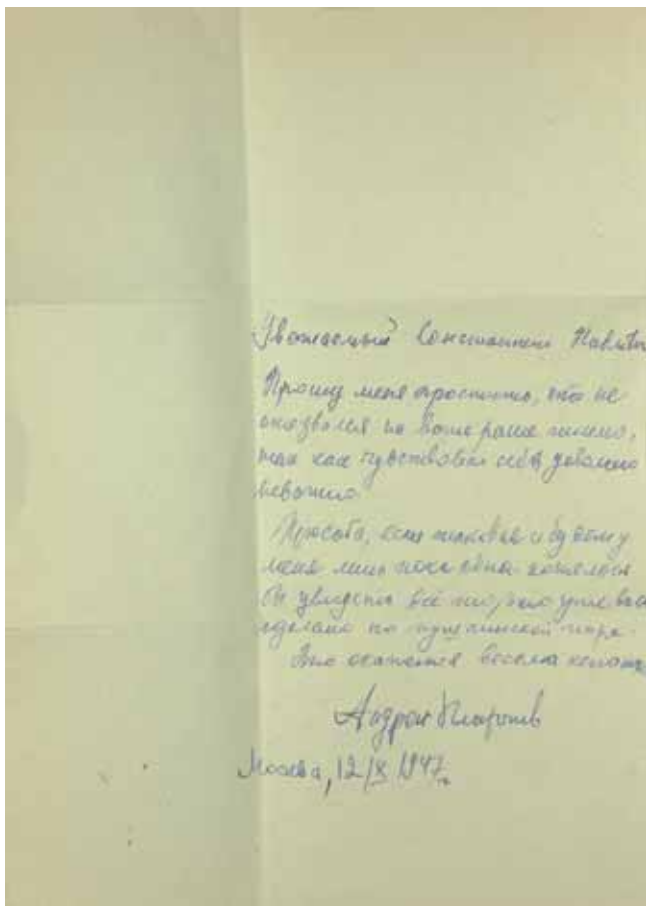 Уважаемый Константин
Прошу меня простить, что не
отозвался на Ваше ранее письмо,
так как чувствовал себя довольно
неважно.
Просьба, если таковая и будет у
меня лишь пока одна хотелось
бы увидеть всё что было уже вами
сделано по пушкинской
окажется весьма
Андрей Платонов
Москва, 12/X 1947 г.